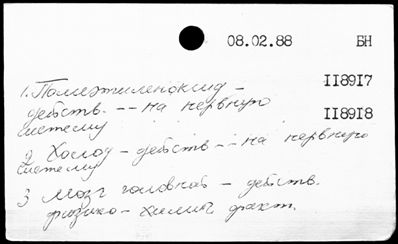 08.02.88 БН
1. Полиэтиленоксид - II89I7
действ. -- на нервную II89I8
систему
2 Холод - действ - - на нервную
систему
3 Мозг головной - действ.
физико - химич факт.